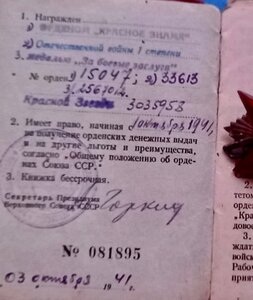 1. Награжден
1) ОРДЕНОМ „КРАСНОЕ ЗНАМЯ"
2) Отечественной войны 1 степени
3. медалью „За боевые заслуги"
№ орденa 1) 15047; 2) 33613
3. 2567012.
Красной Звезды 3035958
2. Имеет право, начиная 1 октября 1941,
на получение орденских денежных выдач
и на другие льготы и преимущества,
согласно „Общему положению об орде-
нах Союза ССР."
3. Книжка бессрочная.
Секретарь Президиума
Верховного Совета СССР
Горкин
№ 081895
03 октября 1941.
тетом
орден
„Кра
довое
ждать
войск
Рабоч
прият